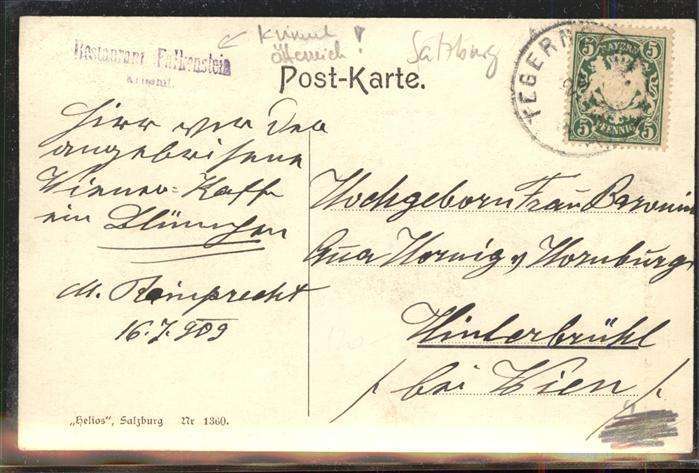 Restaurant Falkenstein
Krimml.
Krimml
Österreich!
Salzburg
Post-Karte.
TEGERN
BAYERN
5 5
5 5
PFENNIG
Hier vor der
angebrisene
Wiener-Kaffe
ein Blümchen
M. Reinprecht
16.7.909
Hochgeborn Frau Baronin
Hornig v Hornburg
Hinterbrühl
bei Wien
„Helios“, Salzburg Nr 1360.